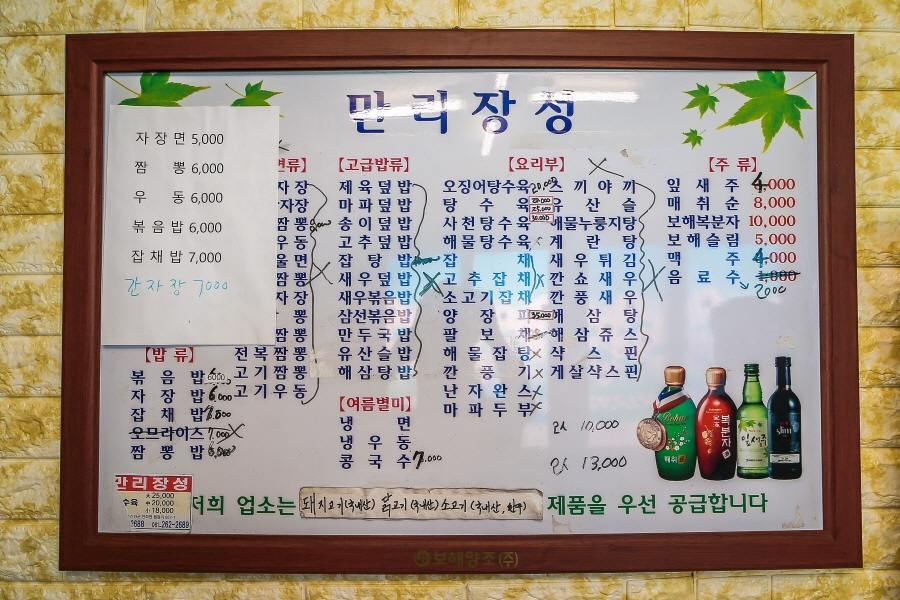 만리장성
자장면 5,000
짬뽕 6,000
우동 6,000
볶음밥 6,000
잡채밥 7,000
간자장 7000
면류】
자장
자장
짬뽕
우동
울면
짬
자장
뽕
짬뽕
전복짬뽕
고기짬뽕
고기우동
【밥류】
볶음밥 6000
자장밥 6,000
잡채밥
오므라이스 7,000
짬뽕밥
【고급밥류】
제육덮밥
마파덮밥
송이덮밥
고추덮밥
잡탕밥
새우덮밥
새우볶음밥
삼선볶음밥
만두국밥
유산슬밥
해삼탕밥
【여름별미】
냉면
냉우동
콩국수 7,000
【요리부】
오징어탕수육 20,000
탕수육 20,000 25,000 30,000
사천탕수육
해물탕수육
잡채
고추잡채
소고기잡채
양장피 35,000
팔보채
해물잡탕
깐풍기
난자완스
마파두부
스끼야끼
유산슬
해물누룽지탕
계란탕
새우튀김
깐쇼새우
깐풍새우
해삼탕
해삼쥬스
샥스핀
게살샥스핀
10,000
13,000
【주류】
잎새주 4,000
매취순 8,000
보해복분자 10,000
보해슬림 5,000
맥주 4,000
음료수 1,000
2000
만리장성
수육 大 25,000
中 20,000
小 18,000
262-2689
저희 업소는 돼지고기(국내산) 닭고기(국내산) 소고기(국내산, 한우) 제품을 우선 공급합니다
매취
복분자
잎새주
보해양조(주)